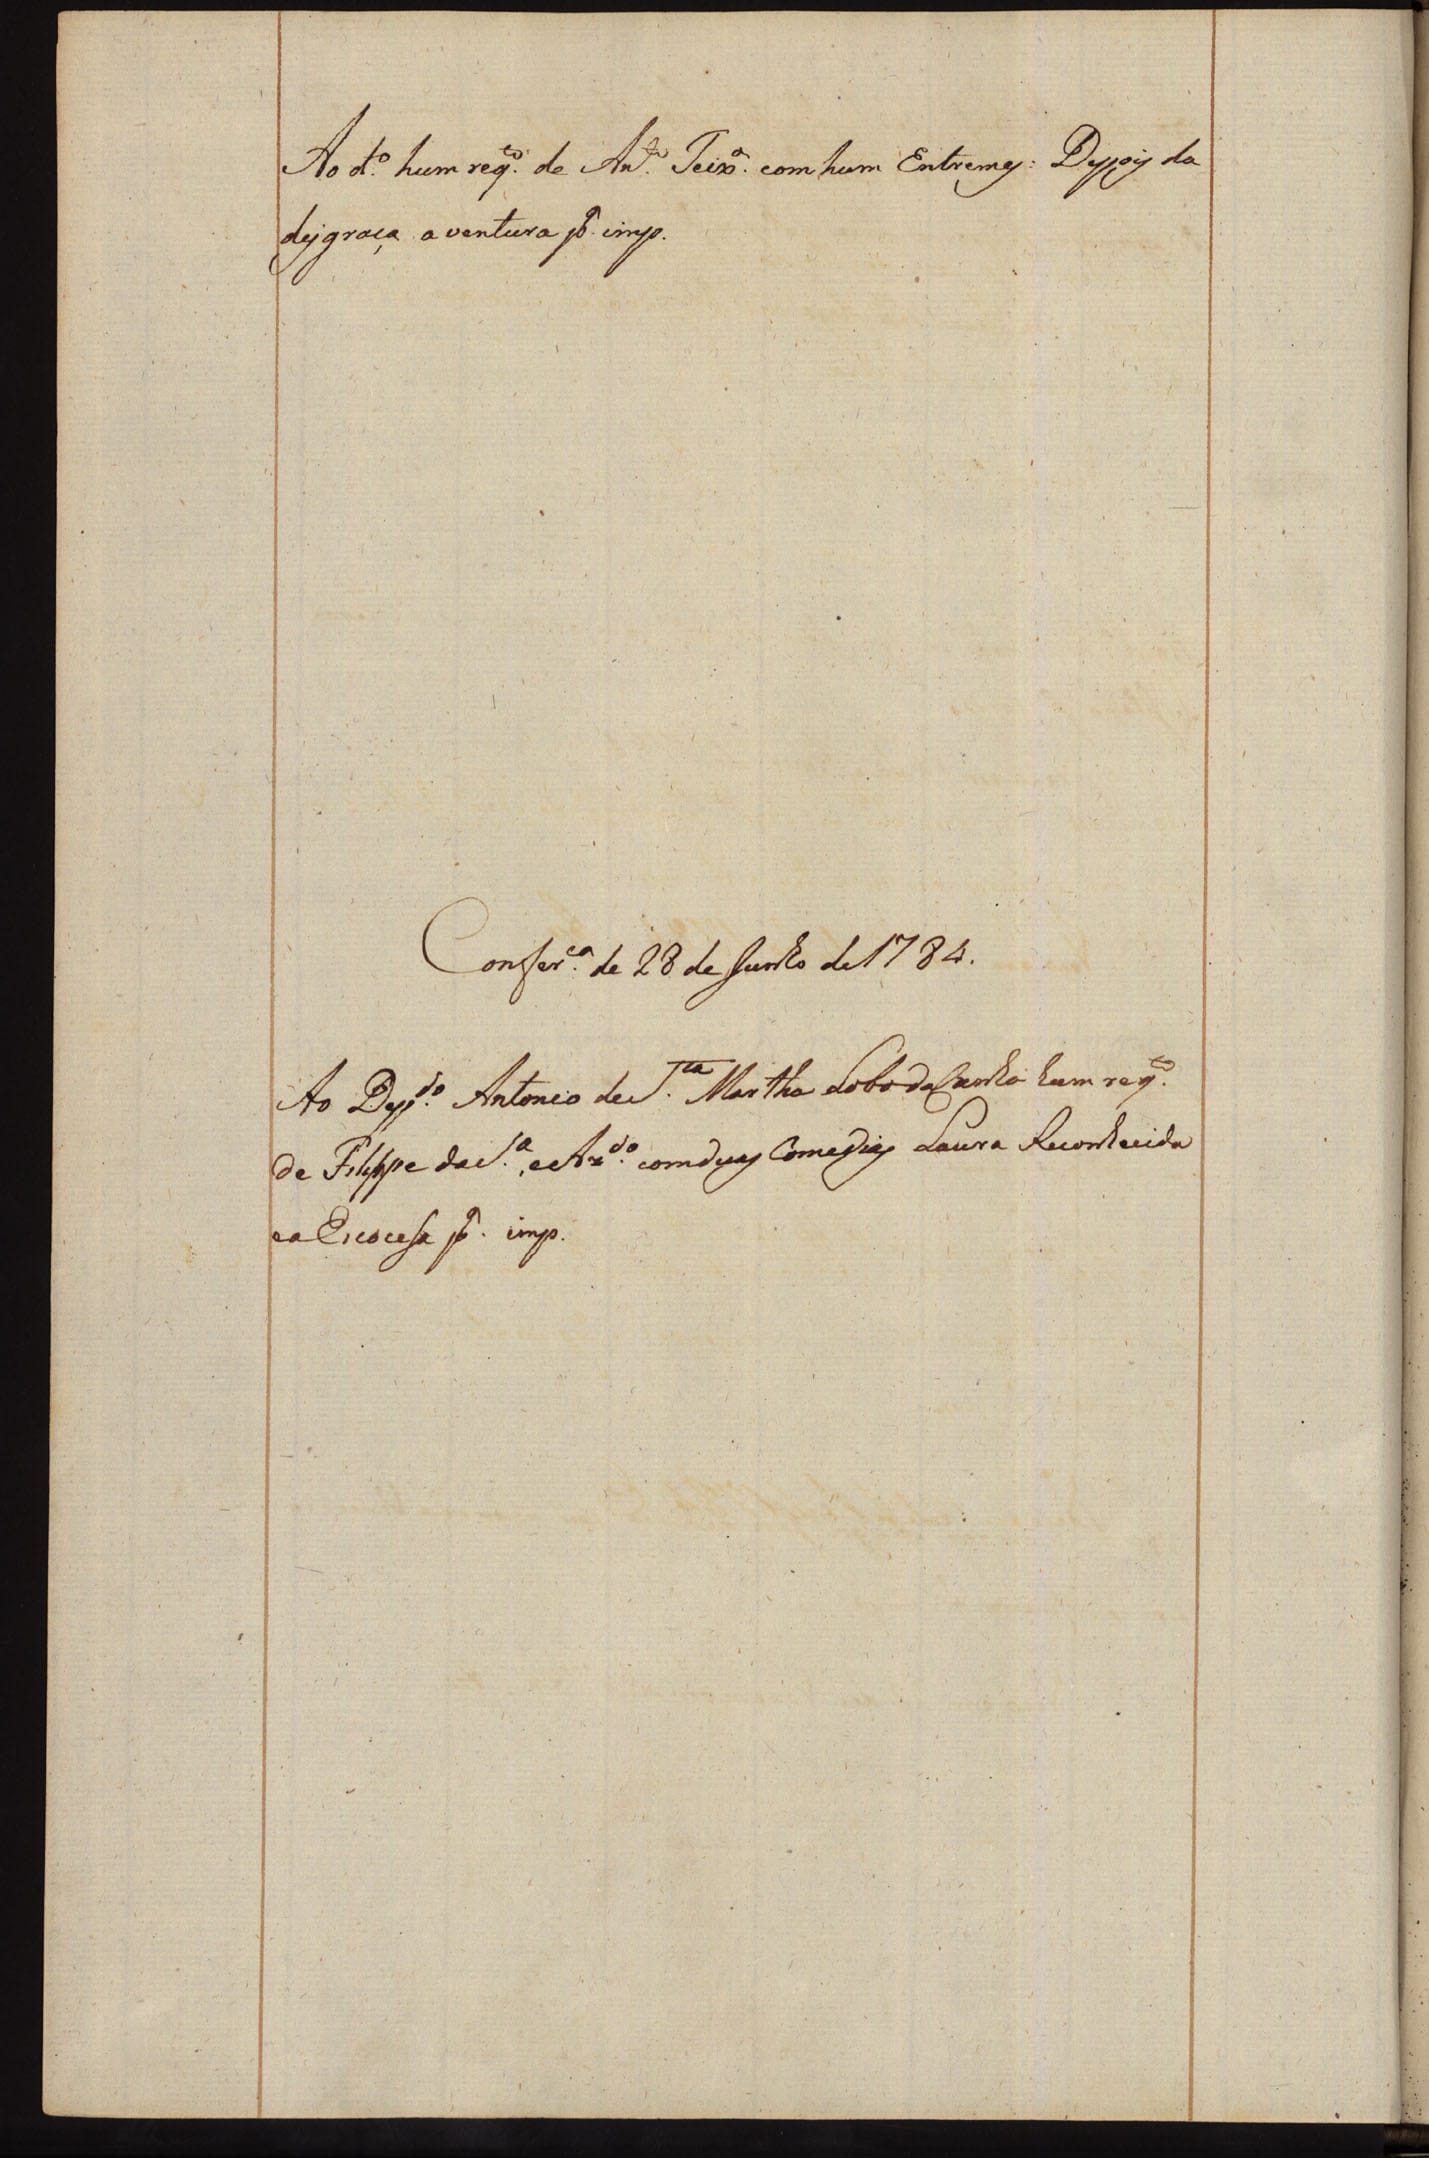 Ao d.º hum req.to de An.to Teix.ª com hum Entremes: Despois da
desgraça a ventura p.ª imp.
Confer.ca de 28 de Junho de 1784.
Ao Dep.do Antonio de S.ta Martha Lobo da Cunha hum req.to
de Filippe da S.ª, e Az.do com duas Comedias Laura Reconhecida
e a Escocesa p.ª imp.